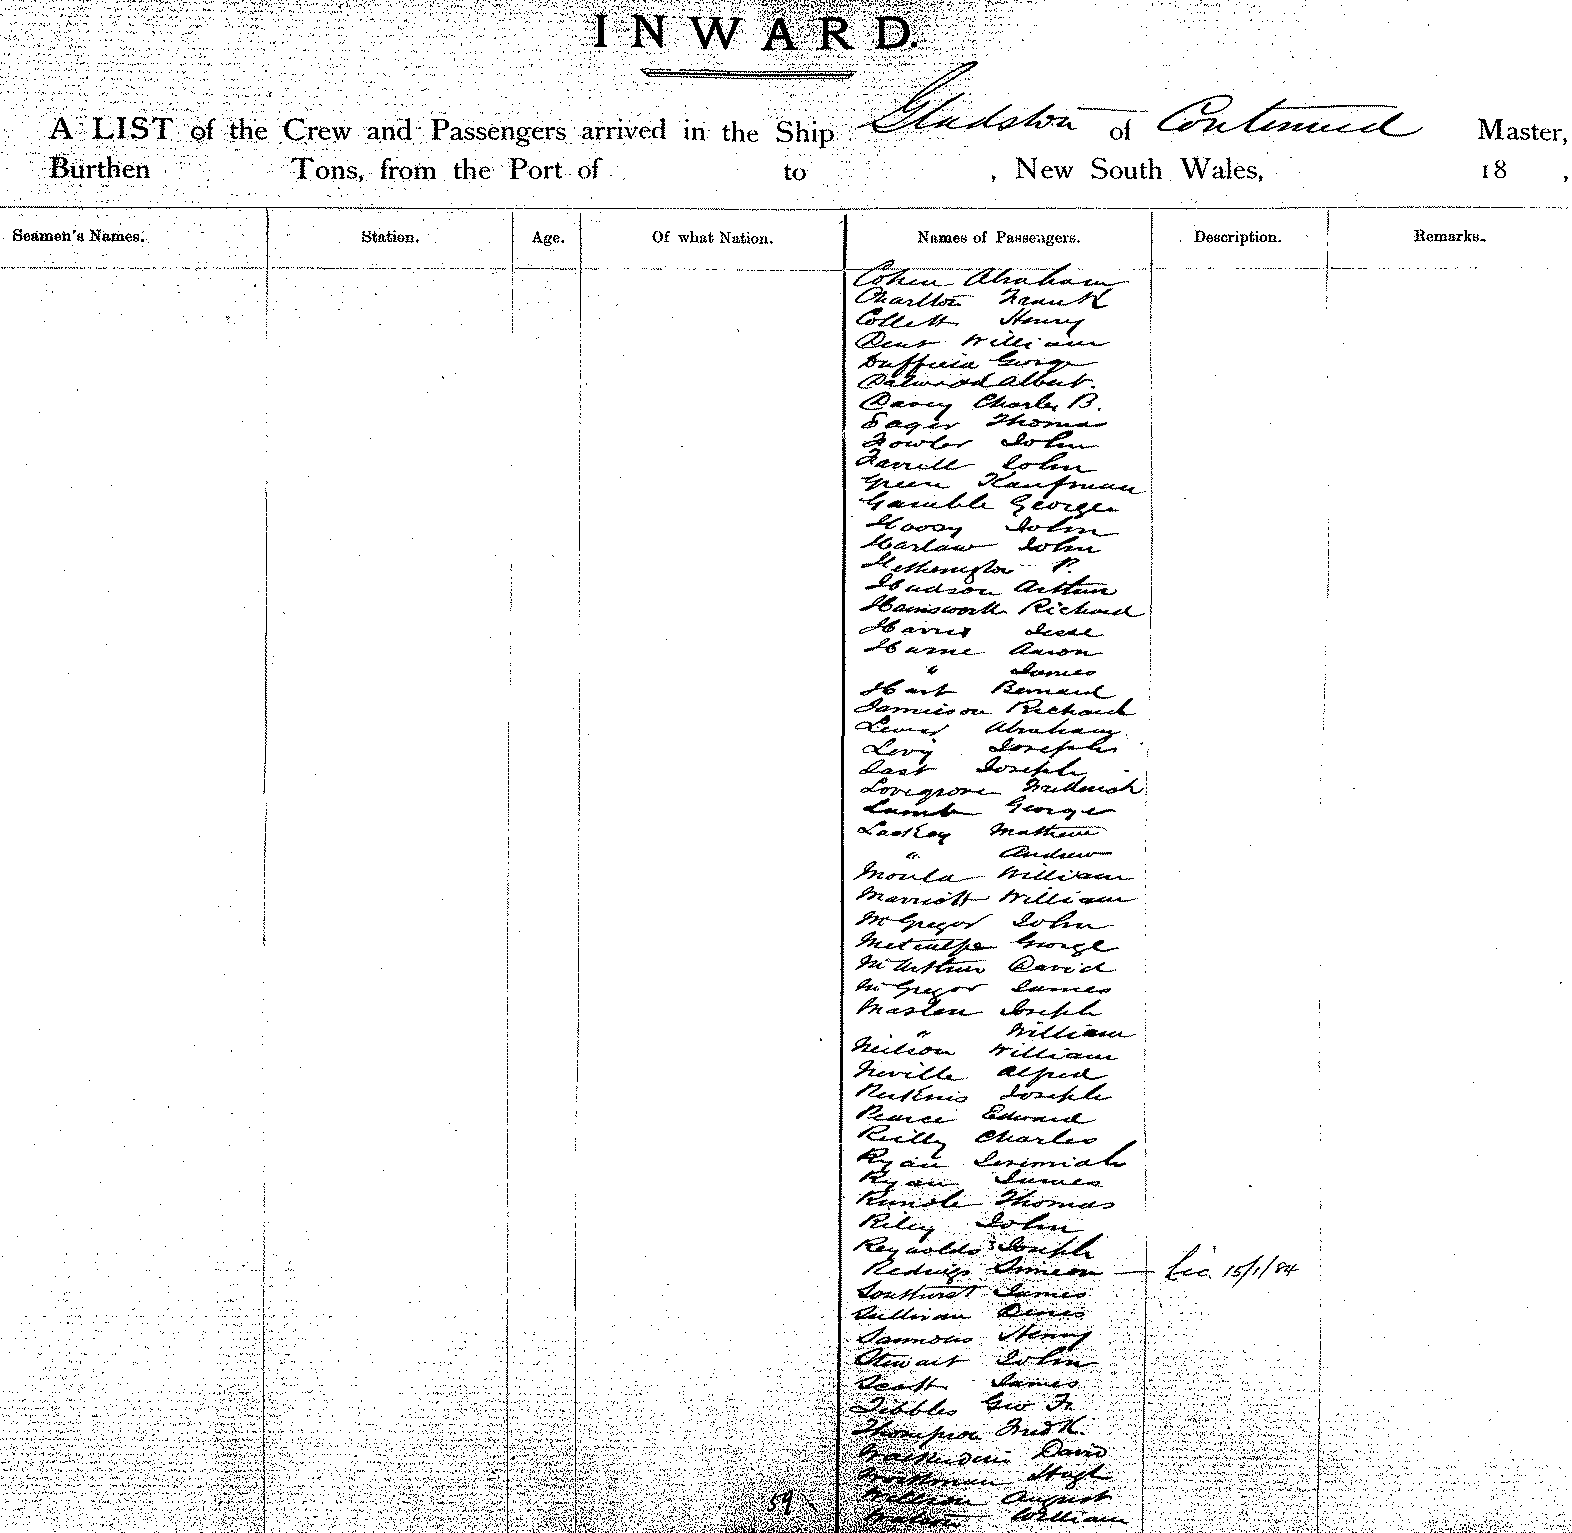 INWARD.
A LIST of the Crew and Passengers arrived in the Ship Gladston of Continued Master,
Burthen Tons, from the Port of to , New South Wales, 18 ,
Seamen's Names. Station. Age. Of what Nation. Names of Passengers. Description. Remarks.
Cohen Abraham
Charlton Frank
Collett Henry
Dent William
Duffield George
Albert.
Davey Charles B.
Eager Thomas
Fowler John
Farrell John
Green Kaufman
Gamble George
John
Harlaw John
Hetherington P.
Hudson Arthur
Hainsworth Richard
Harris Jesse
Hame Aaron
" James
Hart Bernard
Jamieson Richard
Lewis Abraham
Levy Joseph
Last Joseph
Lovegrove Frederick
Lamb George
Laskey Mathew
" Andrew
Mould William
Marriott William
McGregor John
Metcalfe George
McArthur David
McGregor James
Maslen Joseph
" William
Neilson William
Neville Alfred
Perkins Joseph
Pearce Edward
Reilly Charles
Ryan Jeremiah
Ryan James
Rundle Thomas
Riley John
Reynolds Joseph
Simeon — Lic. 15/1/84
Southurst James
Sullivan Denis
Sammons Henry
Stewart John
Scott James
Tibbles Geo Fr.
Thompson Fredk.
David
Workman Hugh
59 August
William